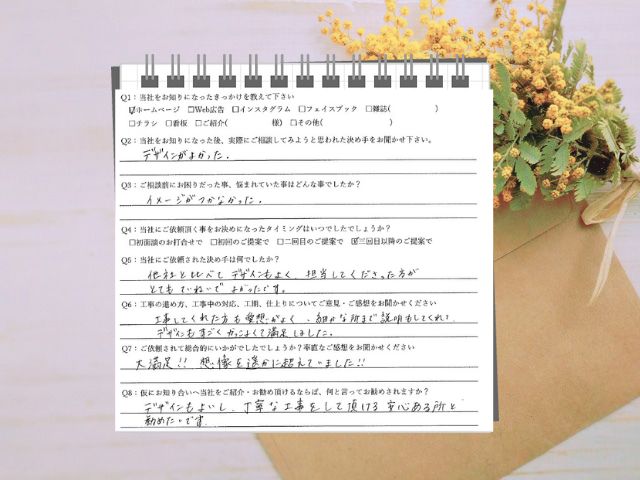 Q1：当社をお知りになったきっかけを教えて下さい
☑ホームページ　□Web広告　□インスタグラム　□フェイスブック　□雑誌(　　　　　)
□チラシ　□看板　□ご紹介(　　　　　様)　□その他(　　　　　　　　)
Q2：当社をお知りになった後、実際にご相談してみようと思われた決め手をお聞かせ下さい。
デザインがよかった。
Q3：ご相談前にお困りだった事、悩まれていた事はどんな事でしたか？
イメージがつかなかった。
Q4：当社にご依頼頂く事をお決めになったタイミングはいつでしたでしょうか？
□初面談のお打合せで　□初回のご提案で　□二回目のご提案で　☑三回目以降のご提案で
Q5：当社にご依頼された決め手は何でしたか？
他社と比べてデザインもよく、担当してくださった方が
とてもていねいでよかったです。
Q6：工事の進め方、工事中の対応、工期、仕上りについてご意見・ご感想をお聞かせください
工事してくれた方も愛想がよく、細かな所まで説明もしてくれて
デザインもすごくかっこよくて満足しました。
Q7：ご依頼されて総合的にいかがでしたでしょうか？率直なご感想をお聞かせください
大満足!! 想像を遥かに超えていました!!
Q8：仮にお知り合いへ当社をご紹介・お勧め頂けるならば、何と言ってお勧めされますか？
デザインもよいし、丁寧な工事をして頂ける安心ある所と
勧めたいです